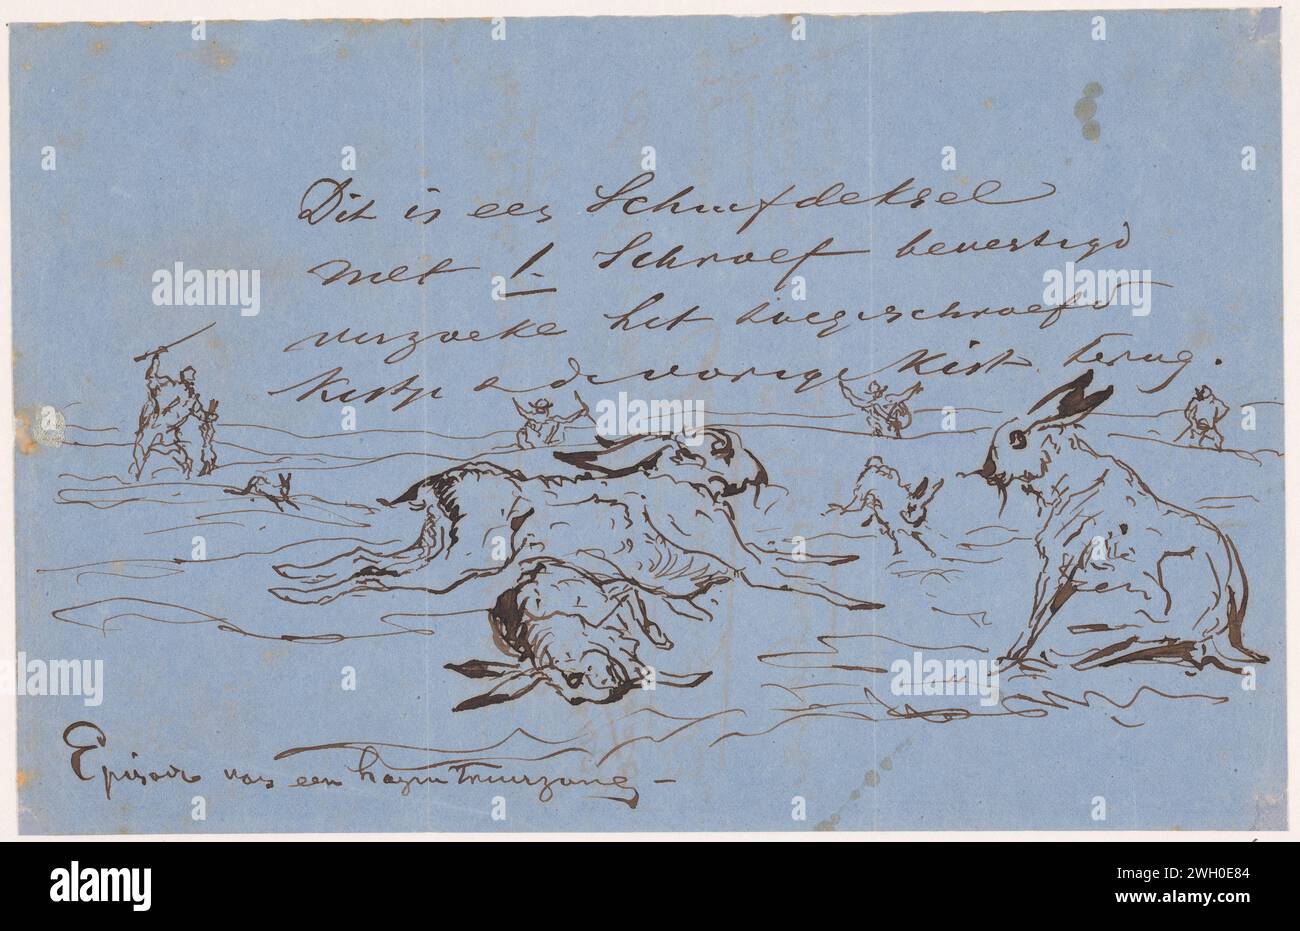 Dit is een Schuifdeksel
met 1. Schroef bevestigd
verzoeke het toegeschroefd
kistje a de vorige Kist terug.
Episode van een hazen Treurzang –
alamy
Image ID: 2WH0E84
www.alamy.com